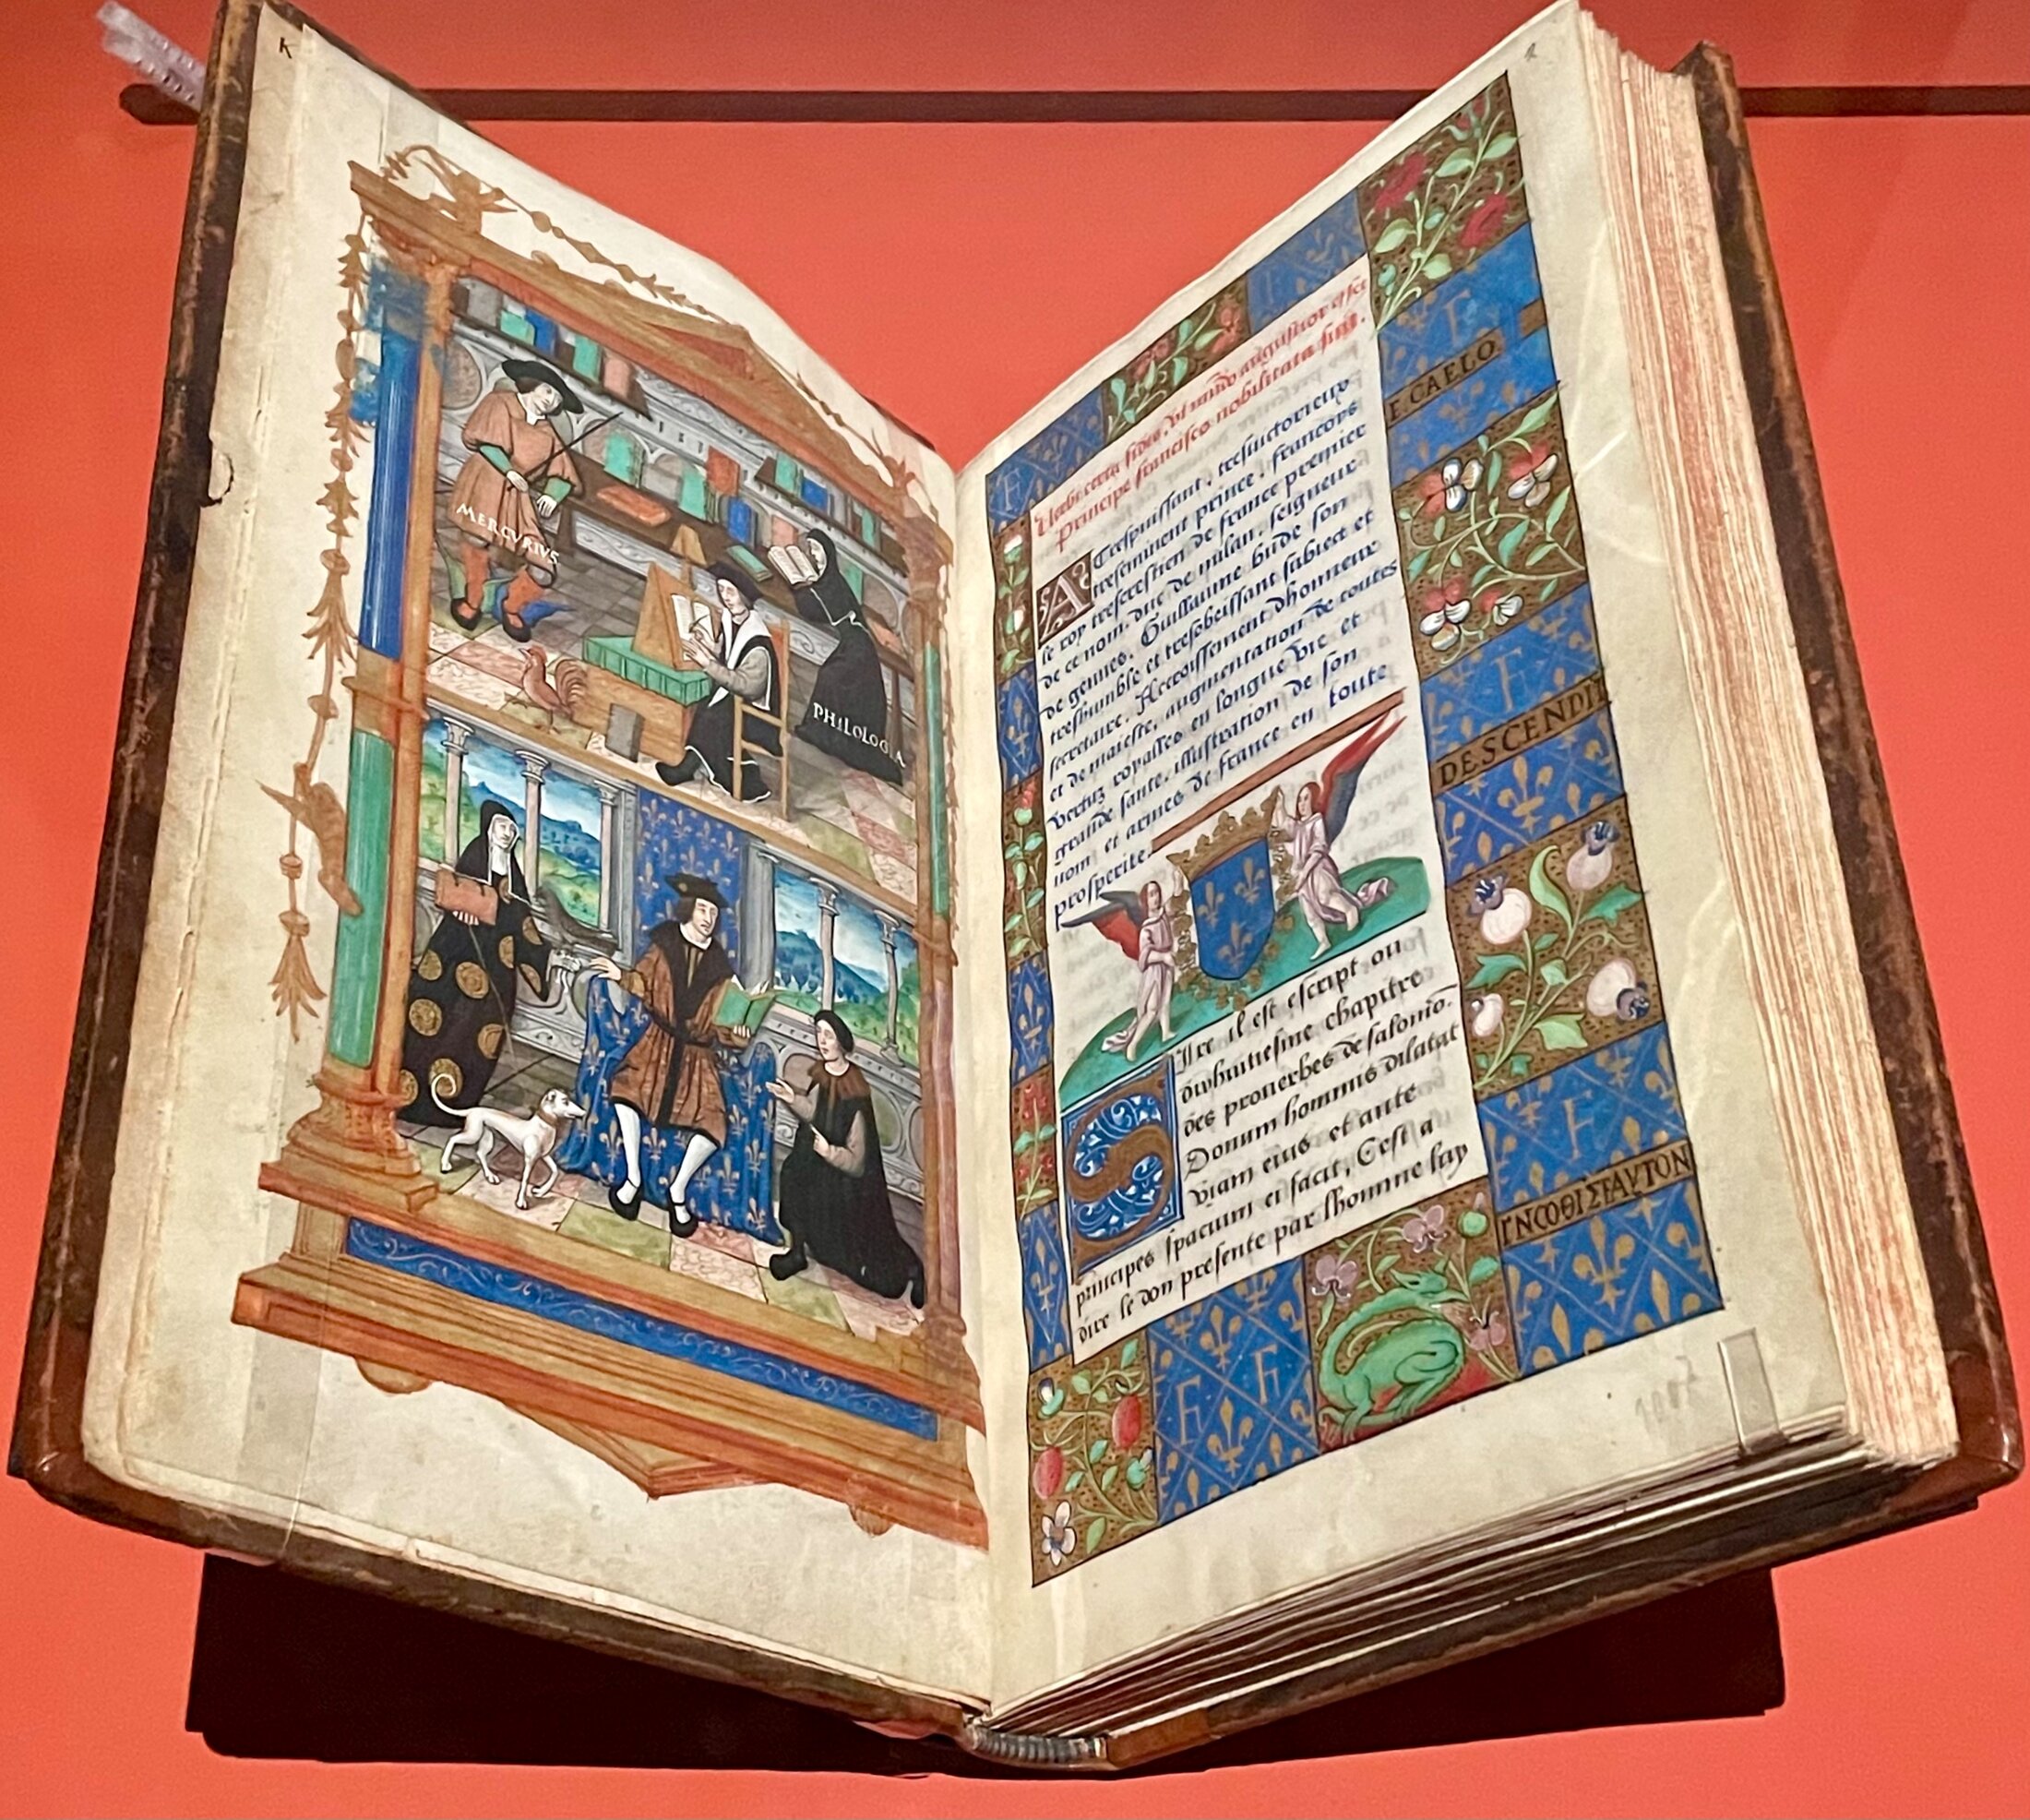 K
MERCVRIVS
PHILOLOGIA
principe francisco nobilitata sint.
A Trespuissant, tresvictorieux
treseminent prince, francoys
le roy trescrestien de france premier
de ce nom, duc de milan, seigneur
de gennes. Guillaume bude son
treshumble et tresobeissant subiect et
secretaire. Accroissement dhonneur
et de maieste, augmentation de toutes
vertuz royalles en longue vie et
grande sante, illustration de son
nom et armes de france en toute
prosperite.
SIre il est escript ou
dixhuitiesme chapitre
des prouerbes de salomō.
Donum hominis dilatat
viam eius et ante
principes spacium ei facit, Cest a
dire le don presente par lhomme luy
E. CAELO.
DESCENDIT
ΓΝΩΘΙΣΕΑΥΤΟΝ
F
F
F
F
F